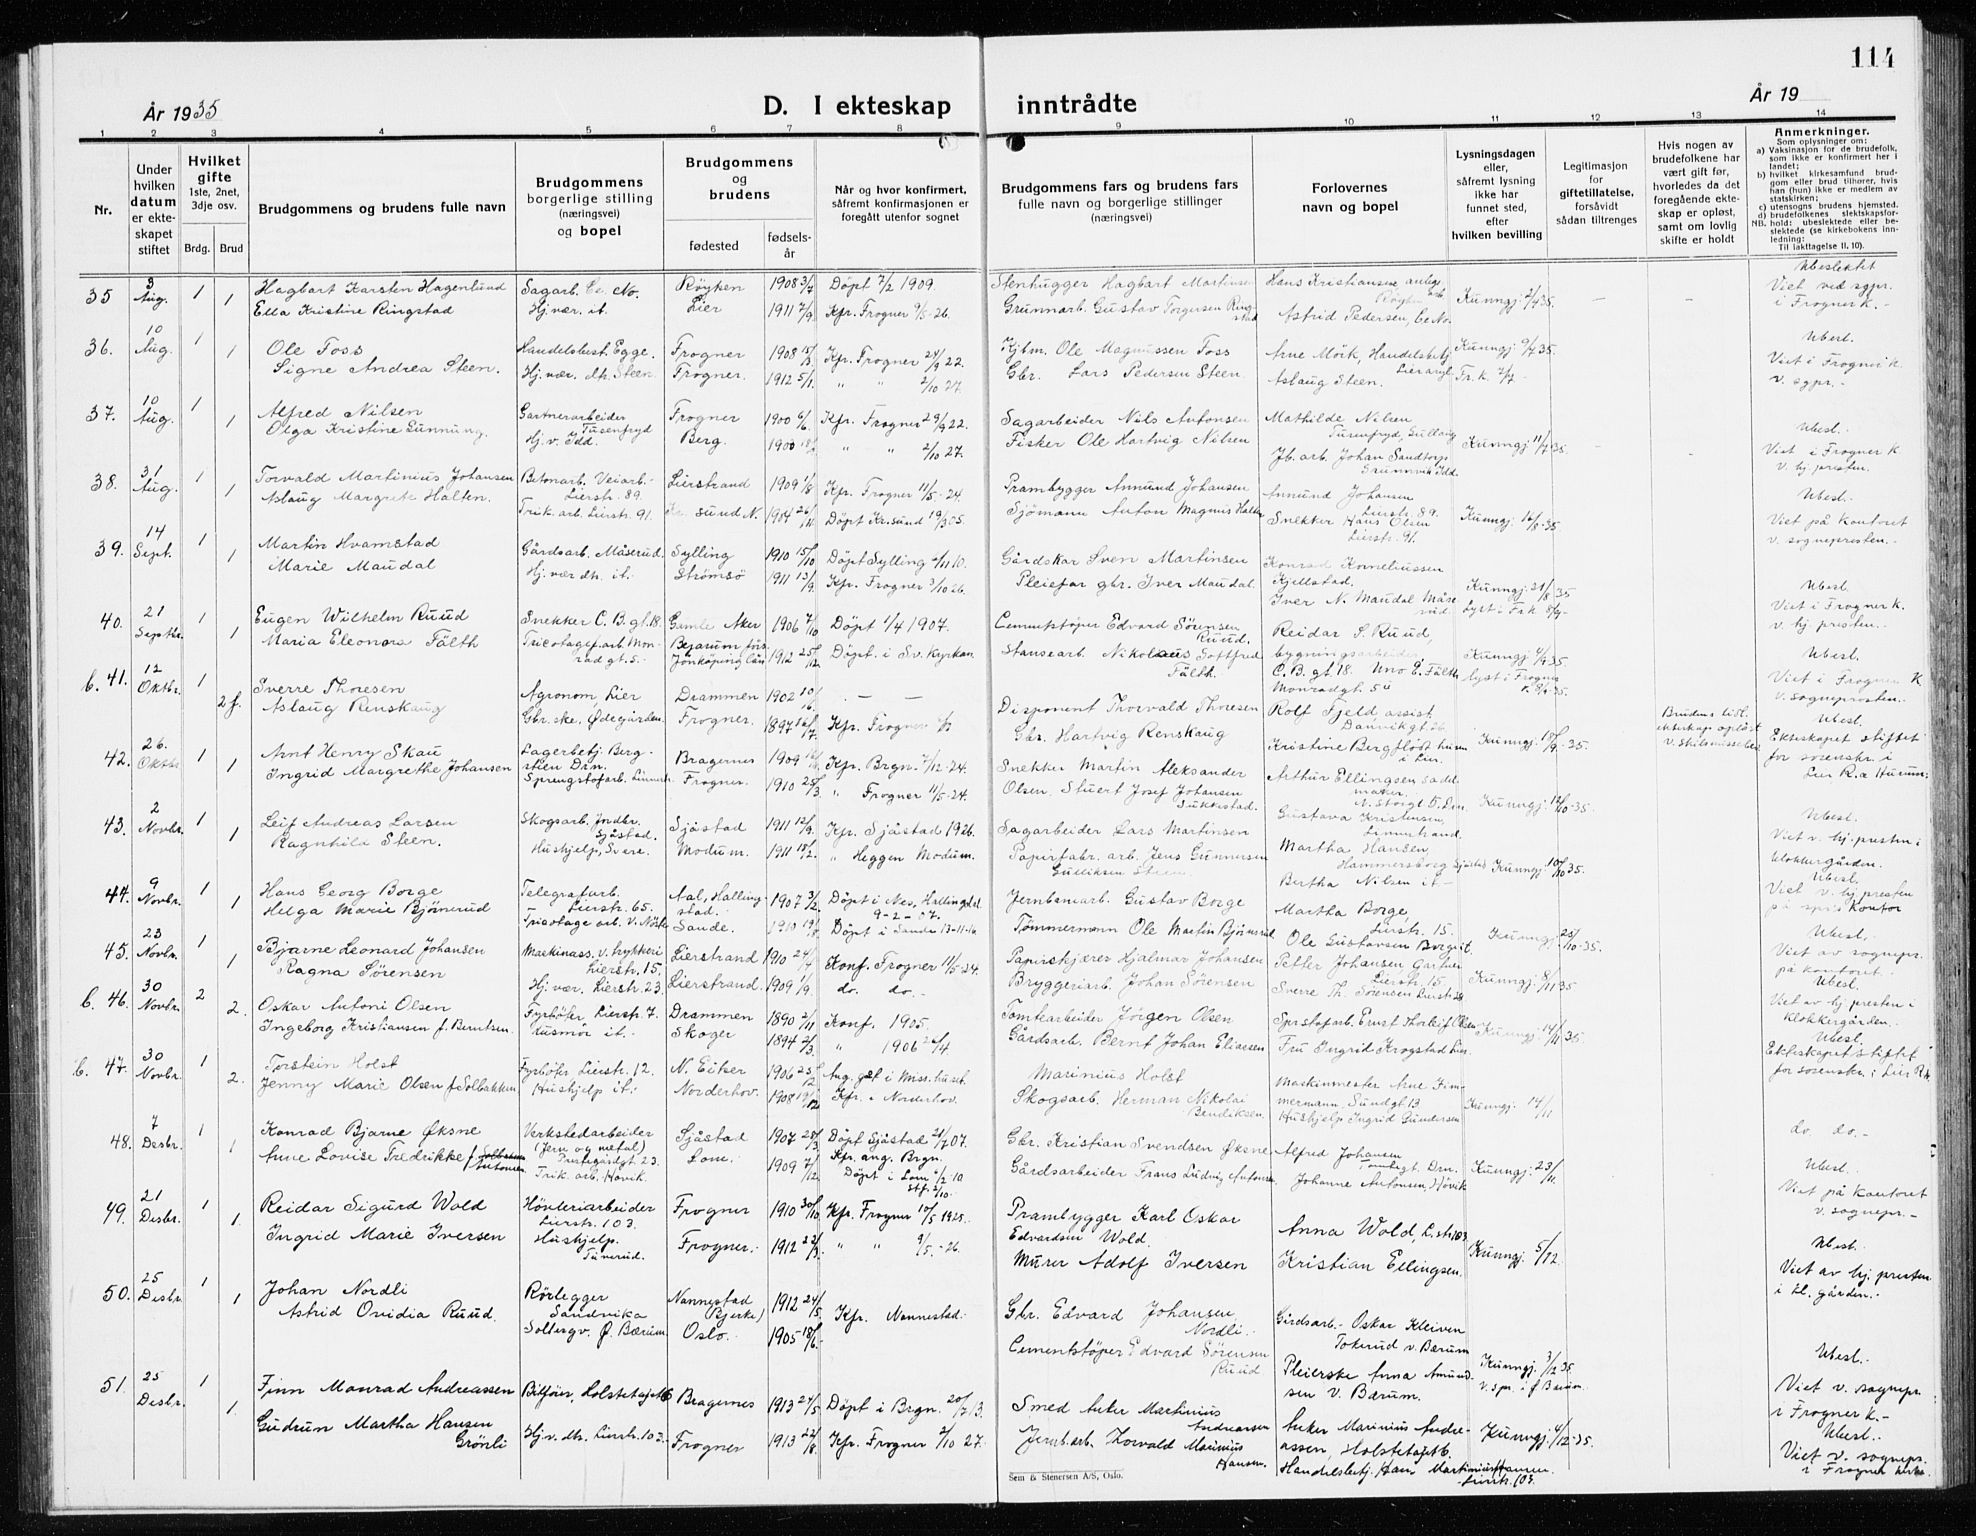 114
År 1935
D. I ekteskap inntrådte
År 19
1 2 3 4 5 6 7 8 9 10 11 12 13 14
Nr.
Under hvilken datum er ekteskapet stiftet
Hvilket gifte 1ste, 2net, 3dje osv.
Brdg. Brud
Brudgommens og brudens fulle navn
Brudgommens borgerlige stilling (næringsvei) og bopel
Brudgommens og brudens
fødested
fødselsår
Når og hvor konfirmert, såfremt konfirmasjonen er foregått utenfor sognet
Brudgommens fars og brudens fars fulle navn og borgerlige stillinger (næringsvei)
Forlovernes navn og bopel
Lysningsdagen eller, såfremt lysning ikke har funnet sted, efter hvilken bevilling
Legitimasjon for giftetillatelse, forsåvidt sådan tiltrenges
Hvis nogen av brudefolkene har vært gift før, hvorledes da det foregående ekteskap er opløst, samt om lovlig skifte er holdt
Anmerkninger.
Som oplysninger om:
a) Vaksinasjon for de brudefolk, som ikke er konfirmert her i landet;
b) hvilket kirkesamfund brudgom eller brud tilhører, hvis han (hun) ikke er medlem av statskirken;
c) utensogns brudens hjemsted.
d) brudefolkenes slektskapsforhold: ubeslektede eller beslektede (se kirkebokens innledning:
NB. Til iakttagelse II. 10).
35 3 Aug. 1 1 Hagbart Karsten Hagenlund Sagarb. Røyken 1908 3/4 Døpt 7/2 1909. Stenhugger Hagbart Martinsen Hans Kristiansen Kunngj. 2/4 35 Ubeslektet
Ella Kristine Ringstad Hj.vær. it. Lier 1911 7/9 Kfr. Frogner 9/5-26. Grunnarb. Gustav Torgersen Ringstad Astrid Pedersen Viet ved sgpr. i Frogner K.
36. 10 Aug. 1 1 Ole Foss Handelsbest. Egge. Frogner 1908 15/3 Kfr. Frogner 24/9 22. Kjbm. Ole Magnussen Foss Arne Mörk, Kunngj 9/7 35. Ubesl.
Signe Andrea Steen. Hj.vær. dh. Steen Frogner. 1912 5/1 " " 2/10 27. Gbr. Lars Pedersen Steen Aslaug Steen. Viet i Frogner K. v. sgpr.
37. 10 Aug. 1 1 Alfred Nilsen Gartnerarbeider Tusenfryd Frogner 1900 6/6 Kfr. Frogner 29/9 22. Sagarbeider Nils Antonsen Mathilde Nilsen Kunngj 11/7 35. Ubesl.
Olga Kristine Gunnung. Hj.v. Idd. Berg. 1900 " " 2/10 27. Fisker Ole Hartvig Nilsen Jb. arb. Johan Sandtorp Viet i Frogner K v. hj. presten.
38. 31 Aug. 1 1 Torvald Martinius Johansen Betonarb. Veiarb. Lierstr. 89. Lierstrand 1909 1/8 Kfr. Frogner 11/5-24. Prambygger Annund Johansen Annund Johansen Lierstr. 89. Kunngj. 16/8-35 Ubesl.
Aslaug Margrete Halten. Trik. arb. Lierstr. 91. Kr. sund N. 1904 26/11 Døpt Kr.sund 19/3 05. Sjömann Anton Magnus Halten Snekker Hans Olsen Lierstr. 91. Viet på kontoret v. sognepresten.
39. 14 Sept. 1 1 Martin Hvamstad Gårdsarb. Måserud. Sylling 1910 15/10 Døpt Sylling 6/11 10. Gårdskar Sven Martinsen Konrad Korneliussen Kjellstad. Kunngj. 21/8 35 Ubesl.
Marie Maudal Hj.vær dh. it. Strømsö 1911 13/9 Kfr. Frogner 3/10 26. Pleiefar gbr. Iver Maudal Iver N. Maudal Måserud. Lyst i Fr.k 8/9 Viet i Frogner K. v. hj. presten.
40. 21 Septbr. 1 1 Eugen Wilhelm Ruud Snekker C. B. gt. 18. Gamle Aker 1906 7/10 Døpt 1/4 1907. Cementstøper Edvard Sørensen Ruud. Reidar S. Ruud, bygningsarbeider C. B. gt. 18. Ubesl.
Maria Eleonora Fälth Tricotagefarb. Monradgt. 5. Jönköping 1912 25/12 Døpt. i Sv. Kyrkan. Stansearb. Nikolaus Gottfred Fälth. Uno E. Fälth Monradgt. 5 Lyst i Frogner Viet i Frogner K v. sognepresten.
b. 41. 12 Oktbr. 1 2 f. Sverre Thoresen Agronom, Lier Drammen 1902 10/16 — — Disponent Thorvald Thoresen Rolf Fjeld assist. Ubesl.
Aslaug Renskaug Gbr. ske. Ødegården. Frogner. 1897 16/7 Kfr. Frogner Gbr. Hartvig Renskaug Kristine Bergflødt Lier. Kunngj. 10/9-35. Brudens tidl. ekteskap opløst Ekteskapet stiftet for sorenskr. i Lier R. a Hurum.
42. 26. Oktbr 1 1 Arnt Henry Skau Lagerbetj. Bergstien Drn. Bragernes 1909 Kfr. Brgn. 7/12-24. Snekker Martin Aleksander Olsen. Arthur Ellingsen Kunngj. 12/10-35.
Ingrid Margrethe Johansen Sprengstofarb. Linnestr. Frogner. 1910 28/3 " Frogner 11/5-24. Stuert Josef Johansen Gustava Kristensen, Ubesl.
43. 2 Novbr. 1 1 Leif Andreas Larsen Skogsarb. Sjåstad. Sjåstad 1911 12/9 Kfr. Sjåstad 1926. Sagarbeider Lars Martinsen Martha Hansen, Hammersborg Kunngj. 10/10 35. Viet v. hj. presten i klokkergården.
Ragnhild Steen. Hushjelp, Modum. 1911 18/2 " Heggen Modum. Papirfabr. arb. Jens Gunnersen Gulliksen Steen. Bertha Nilsen it Ubesl.
44. 9 Novbr. 1 1 Hans Georg Borge Telegrafarb. Lierstr. 65. Aal, Hallingstad. 1907 3/2 Døpt i Nes, Hallingdal 9-2-07. Jernbanearb. Gustav Borge Martha Borge, Lierstr. 15. Kunngj. 25/10-35. Viet v. hj presten på spr.s kontor
Helga Marie Bjønerud Tricotage arb. Sande. 1910 Døpt i Sande 13-11-10 Tömmermann Ole Martin Bjønerud Ole Gustavsen Borge it. Ubesl.
45. 23 Novbr. 1 1 Bjarne Leonard Johansen Maskinass. v. trykkeri Lierstr. 15. Lierstrand 1910 24/4 Konf. Frogner 11/5-24. Papirskjærer Hjalmar Johansen Petter Johansen Gartner Lierstr. 15. Kunngj 8/11 35 Viet av sognepr. på kontoret.
Ragna Sørensen Hj. vær. Lierstr. 23. Lierstrand. 1909 1/9 do. do. Bryggeriarb. Johan Sørensen Sverre Th. Sörensen Lierstr. 23 Ubesl.
b. 46. 30 Novbr. 2 2. Oskar Antoni Olsen Fyrbøter Lierstr. 7. Drammen 1890 2/11 Konf. 1905. Tomtearbeider Jörgen Olsen Sprstofarb. Ernst Thorleif Olsen Kunngj 14/11 35 Viet av hj. presten i klokkergården.
Ingeborg Kristiansen f. Berntsen. Husmor it. Skoger 1894 2/3 " 1906 26/4 Gårdsarb. Bernt Johan Eliassen Fru Ingrid Krogstad Lier. Ubesl.
b. 47. 30 Novbr. 1 2. Torstein Holst Fyrbøter Lierstr. 12. N. Eiker 1906 25/12 Marinius Holst Maskinmester Arne Zimmermann, Sundgt 13 Ekteskapet stiftet for sorenskr. i Lier R.
Jenny Marie Olsen f. Solbakken Hushjelp it. Norderhov. 1908 19/12 Kfr. i Norderhov. Skogsarb. Herman Nikolai Bendiksen Hushjelp Ingrid Gundersen Kunngj. 14/11 do. do.
48. 7 Desbr. 1 1 Konrad Bjarne Øksne Verkstedarbeider (Jern og metal) Sjåstad 1907 28/3 Døpt Sjåstad 21/7 07. Gbr. Kristian Svendsen Øksne Alfred Johansen Kunngj 23/11. Ubesl.
Anne Lovise Fredrikke f. Antonsen Trik. arb. Høvik. Lom. 1909 7/12 Kfr. ang. Brgn. Døpt i Lom 6/2 10 Gårdsarbeider Frans Ludvig Antonsen Johanne Antonsen, Høvik Viet på kontoret v. sognepr.
49. 21 Desbr. 1 1. Reidar Sigurd Wold Høvleriarbeider Lierstr. 103. Frogner 1910 30/10 Kfr. Frogner 10/5 1925. Prambygger Karl Oskar Edvardsen Wold. Anna Wold, L.str. 103 Kunngj 5/12. Ubesl.
Ingrid Marie Iversen Hushjelp. Tuverud. Frogner. 1912 22/3 " " 9/5-26. Murer Adolf Iversen Kristian Ellingsen. Viet av hj. presten i kl. gården.
50. 25 Desbr. 1 1 Johan Nordli Rörlegger Sandvika Nannestad (Bjerke) 1912 24/5 Kfr. Nannestad. Gbr. Edvard Johansen Nordli. Gårdsarb. Oskar Kleiven Tokerud v. Bærum Kunngj. 3/12 35 Ubesl.
Astrid Ovidia Ruud. Solbergv. Ø. Bærum. Oslo. 1905 18/6 Cementstöper Edvard Sörensen Ruud Pleierske Anna Amundsen V. Bærum. V. spr. i Ø Bærum. Viet v. sognepr. i Frogner K.
51. 25 Desbr. 1 1. Finn Monrad Andreassen Bilfører, Holstetajet 6 Bragernes 1913 24/5 Døpt i Brgn. 20/7 13. Smed Anker Martinius Andreassen Anker Marinius Andreassen, Holstetajet 6. Kunngj. 4/12-35. Ubesl.
Gudrun Martha Hansen Grönli Hj. v. dh. Lierstr. 103. Frogner 1913 22/8 Kfr. Frogner 2/10 27. Jernb. arb. Torvald Marinius Hansen. Handelsbetj. Hans Martinius Hansen Lierstr. 103. Viet v. sognepr. i Frogner kirke.
Sem & Stenersen A/S, Oslo.